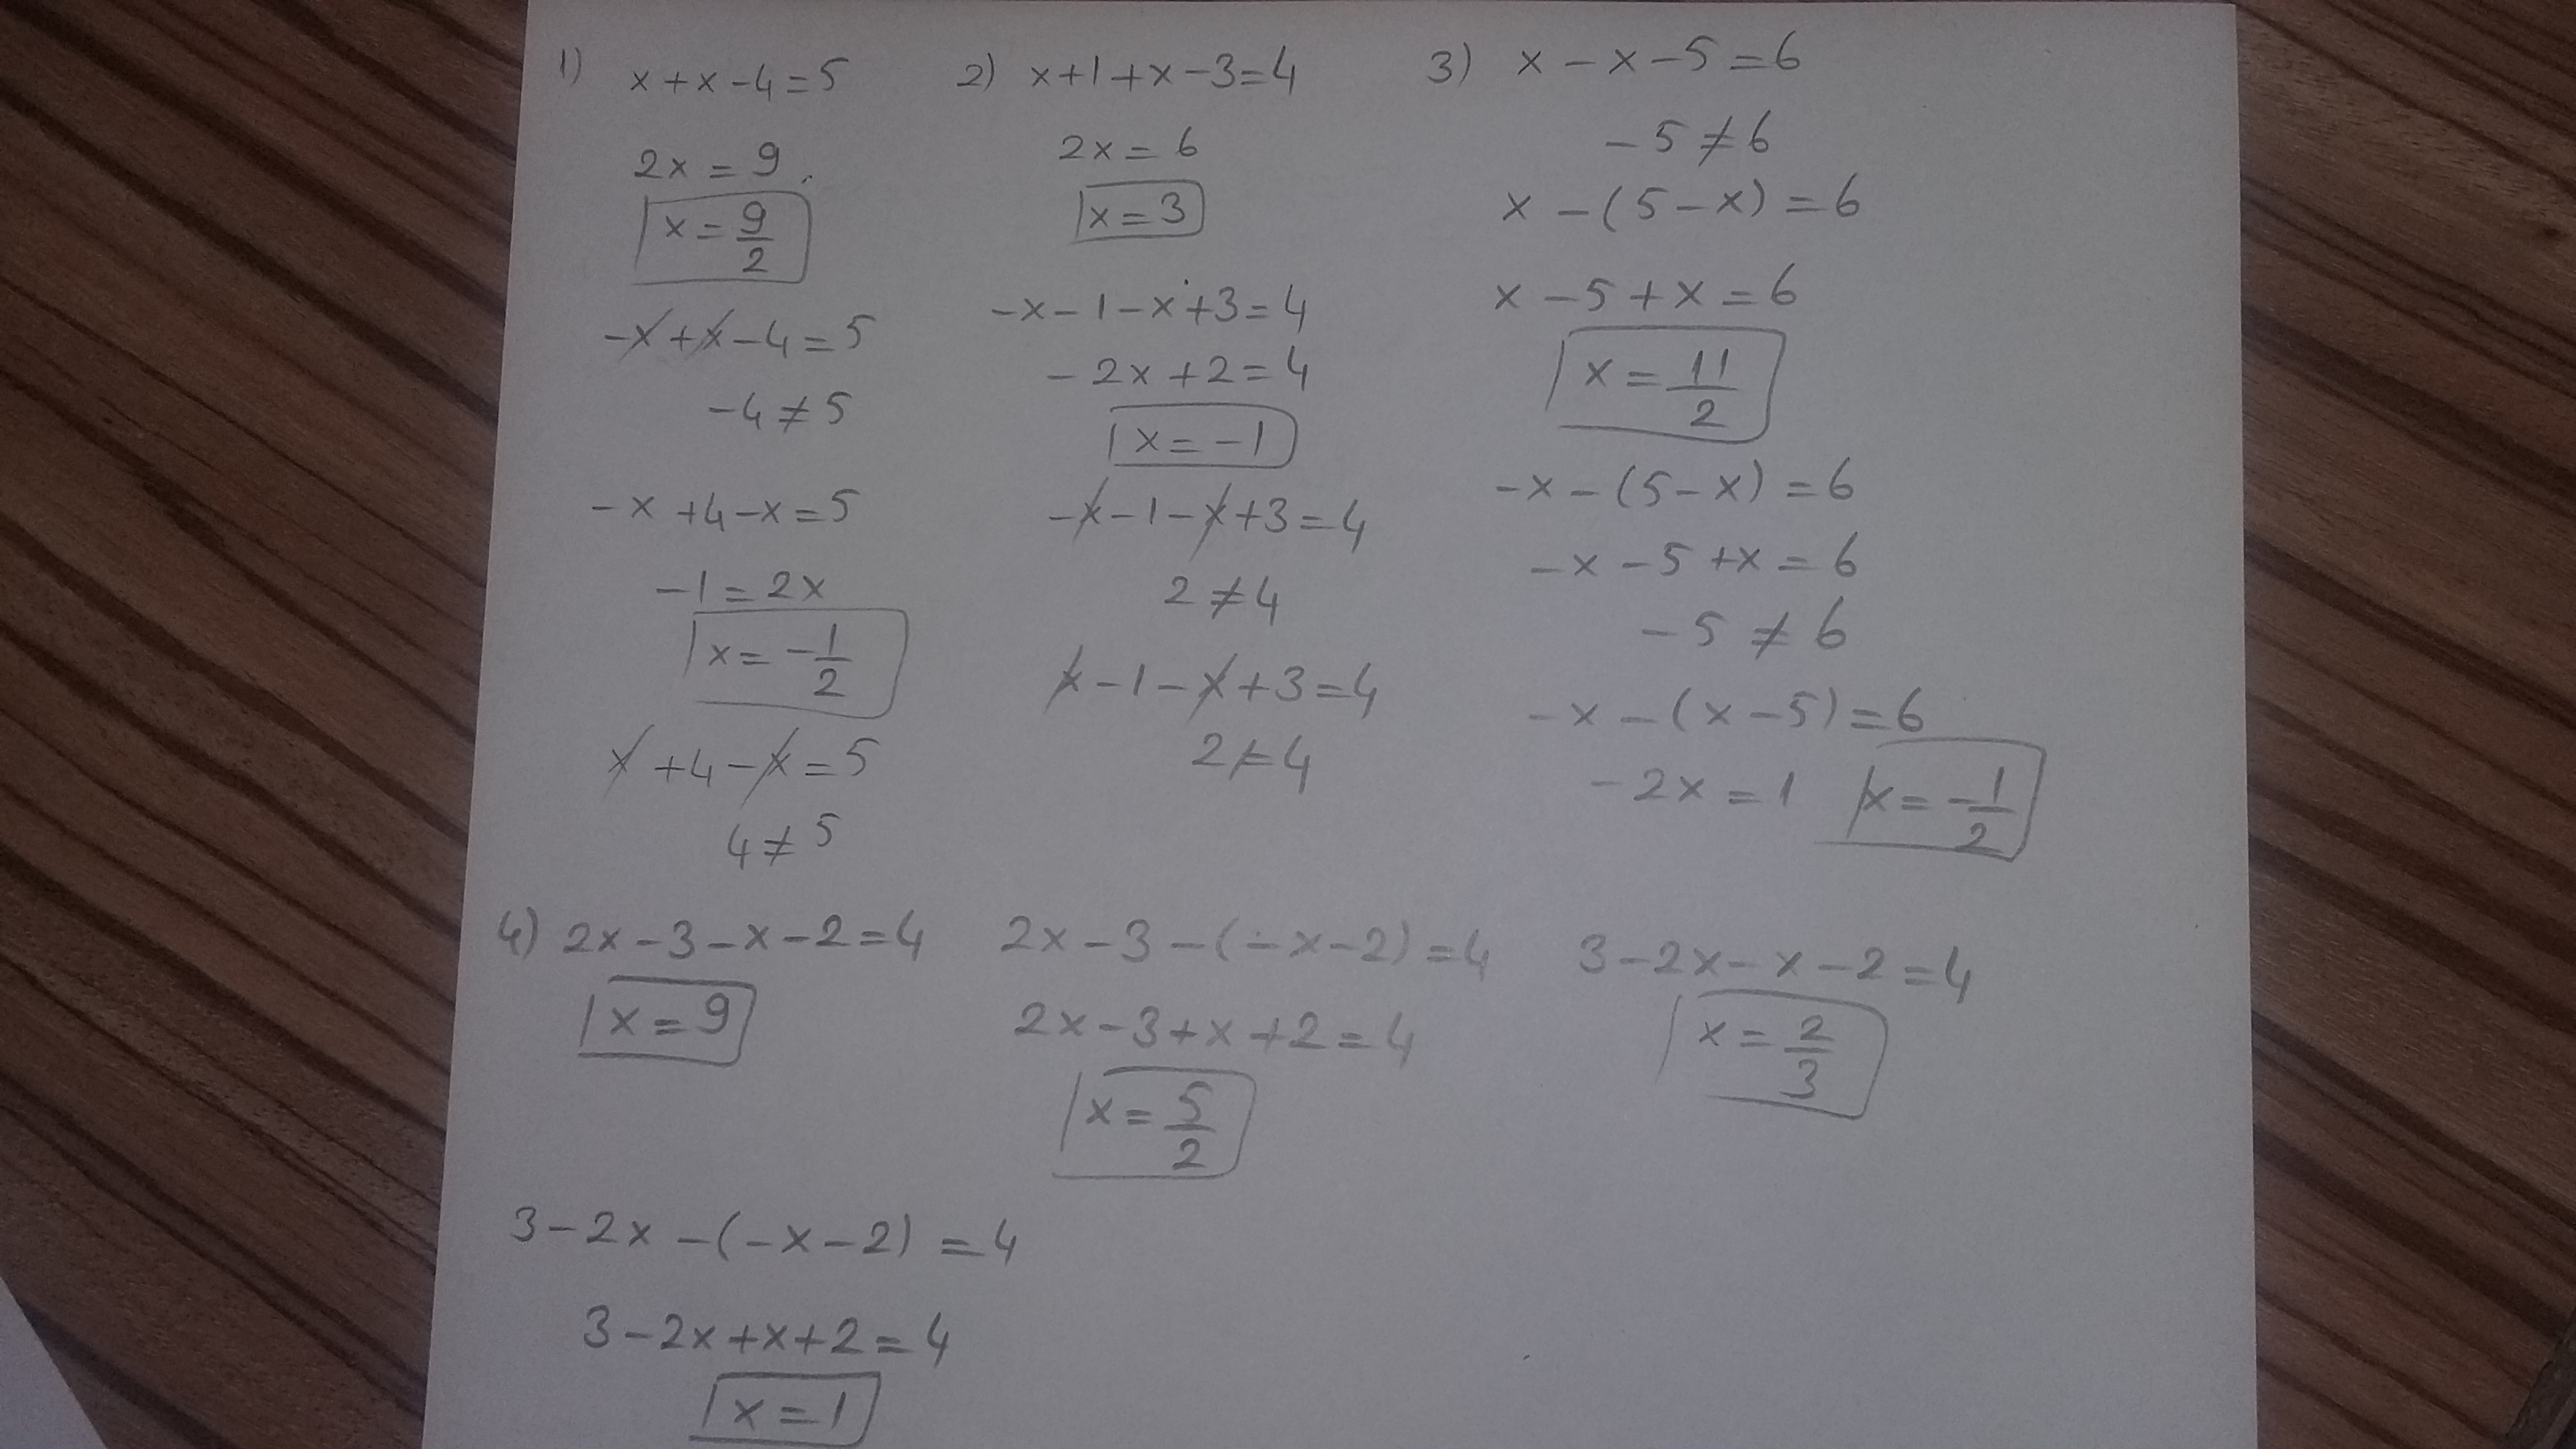 1) x + x - 4 = 5
2x = 9
x = 9/2
-x + x - 4 = 5
-4 ≠ 5
-x + 4 - x = 5
-1 = 2x
x = -1/2
x + 4 - x = 5
4 ≠ 5
2) x + 1 + x - 3 = 4
2x = 6
x = 3
-x - 1 - x + 3 = 4
-2x + 2 = 4
x = -1
-x - 1 - x + 3 = 4
2 ≠ 4
x - 1 - x + 3 = 4
2 ≠ 4
3) x - x - 5 = 6
-5 ≠ 6
x - (5 - x) = 6
x - 5 + x = 6
x = 11/2
-x - (5 - x) = 6
-x - 5 + x = 6
-5 ≠ 6
-x - (x - 5) = 6
-2x = 1 x = -1/2
4) 2x - 3 - x - 2 = 4
x = 9
2x - 3 - (-x - 2) = 4
2x - 3 + x + 2 = 4
x = 5/2
3 - 2x - x - 2 = 4
x = 2/3
3 - 2x - (-x - 2) = 4
3 - 2x + x + 2 = 4
x = 1